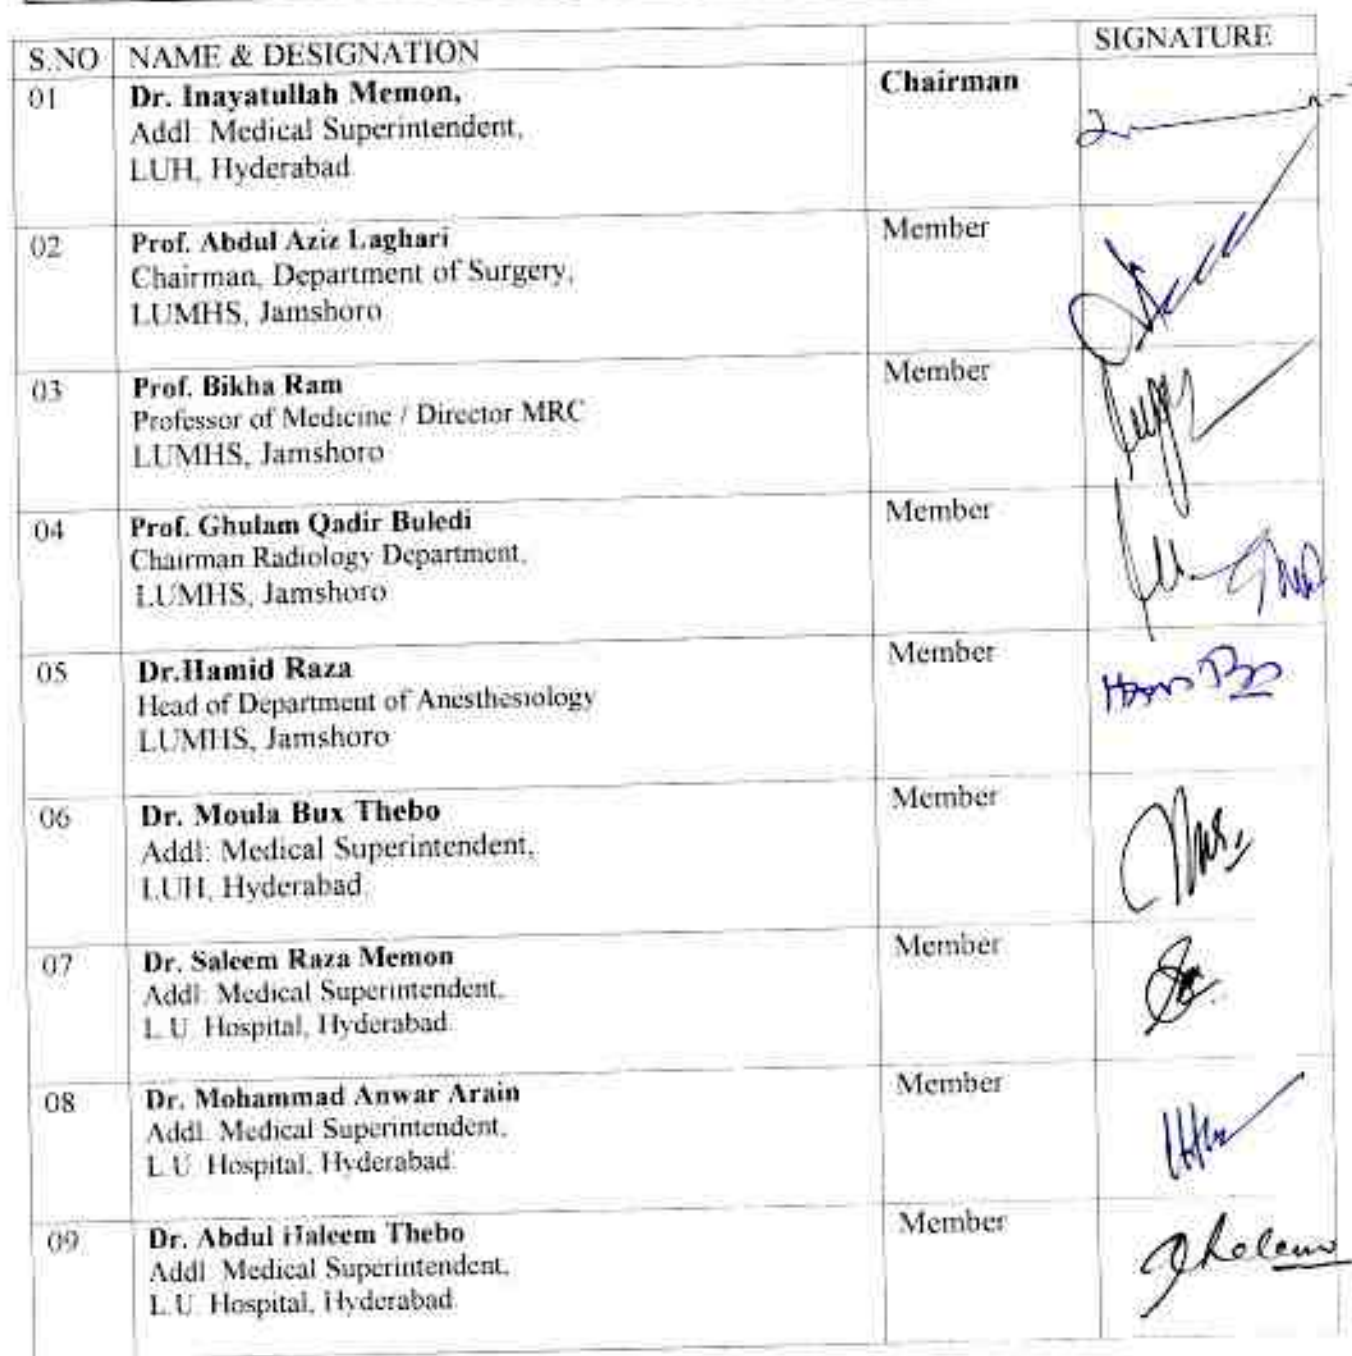 S.NO NAME & DESIGNATION SIGNATURE
01 Dr. Inayatullah Memon, Chairman
Addl: Medical Superintendent,
LUH, Hyderabad
02 Prof. Abdul Aziz Laghari Member
Chairman, Department of Surgery,
LUMHS, Jamshoro
03 Prof. Bikha Ram Member
Professor of Medicine / Director MRC
LUMHS, Jamshoro
04 Prof. Ghulam Qadir Buledi Member
Chairman Radiology Department,
LUMHS, Jamshoro
05 Dr.Hamid Raza Member
Head of Department of Anesthesiology
LUMHS, Jamshoro
06 Dr. Moula Bux Thebo Member
Addl: Medical Superintendent,
LUH, Hyderabad.
07 Dr. Saleem Raza Memon Member
Addl: Medical Superintendent,
L.U. Hospital, Hyderabad.
08 Dr. Mohammad Anwar Arain Member
Addl: Medical Superintendent,
L.U. Hospital, Hyderabad.
09 Dr. Abdul Haleem Thebo Member
Addl: Medical Superintendent,
L.U. Hospital, Hyderabad.